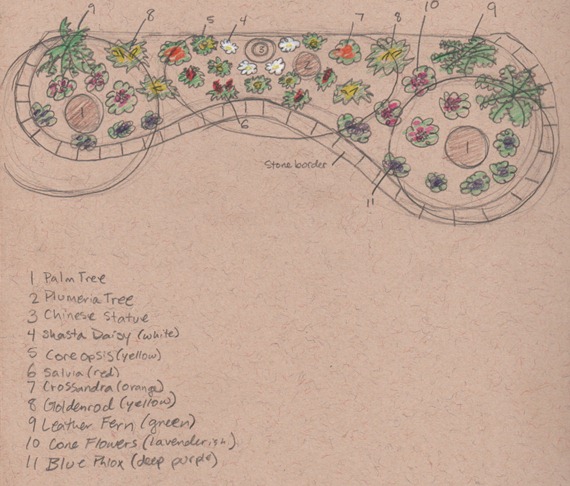 9 8 5 4 7 8 10 9
3
1
1
6
Stone border
11
1 Palm Tree
2 Plumeria Tree
3 Chinese Statue
4 Shasta Daisy (white)
5 Coreopsis (yellow)
6 Salvia (red)
7 Crossandra (orange)
8 Goldenrod (yellow)
9 Leather Fern (green)
10 Cone Flowers (lavenderish)
11 Blue Phlox (deep purple)